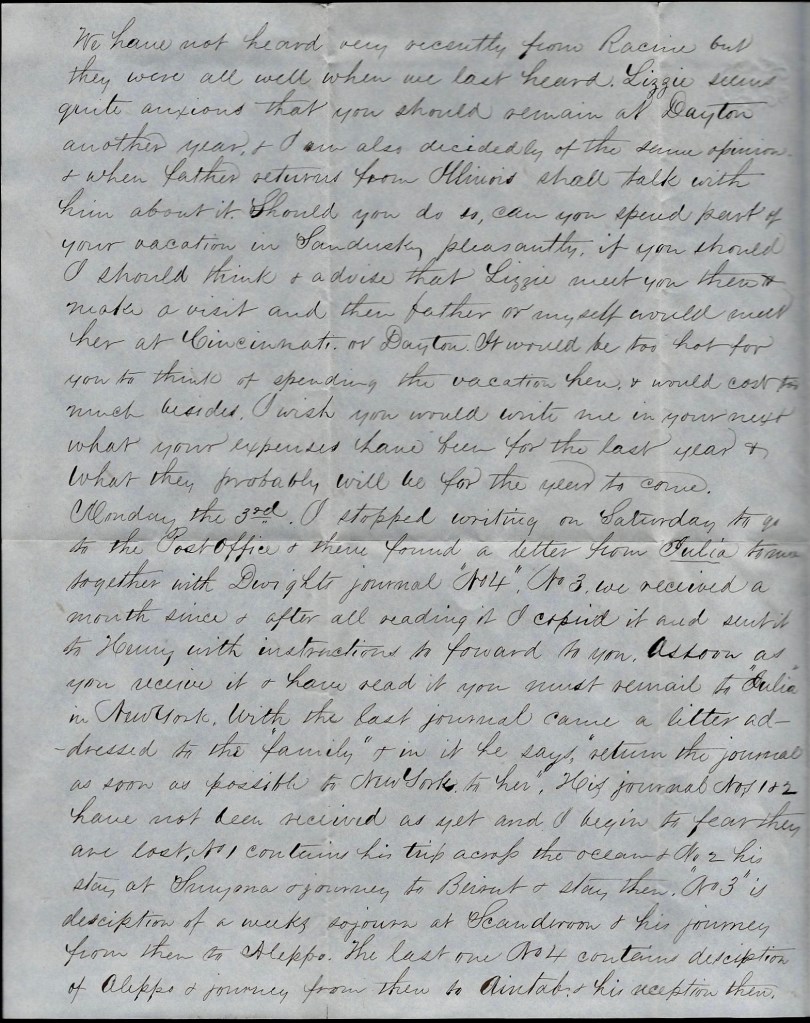 We have not heard very recently from Racine but
they were all well when we last heard. Lizzie seems
quite anxious that you should remain at Dayton
another year, & I am also decidedly of the same opinion
& when father returns from Illinois shall talk with
him about it. Should you do so, can you spend part of
your vacation in Sandusky pleasantly. if you should
I should think & advise that Lizzie meet you there &
make a visit and then father or myself would meet
her at Cincinnati. or Dayton. It would be too hot for
you to think of spending the vacation here. & would cost too
much besides. I wish you would write me in your next
what your expenses have been for the last year &
what they probably will be for the year to come.
Monday the 3rd. I stopped writing on Saturday to go
to the Post Office & there found a letter from Julia to me
together with Dwights journal "No 4". No 3. we received a
month since & after all reading it I copied it and sent it
to Henry with instructions to foward to you. As soon as
you receive it & have read it you must remail to "Julia"
in New York. With the last journal came a letter ad-
-dressed to the "family" & in it he says, "return the journal
as soon as possible to New York to her". His journal Nos 1 & 2
have not been received as yet and I begin to fear they
are lost, No 1 contains his trip across the ocean & No 2 his
stay at Smyrna & journey to Beirut & stay then. "No 3" is
desciption of a weeks sojourn at Scanderoon & his journey
from then to Aleppo. The last one No 4 contains desciption
of Aleppo & journey from then to Aintab. & his reception then.